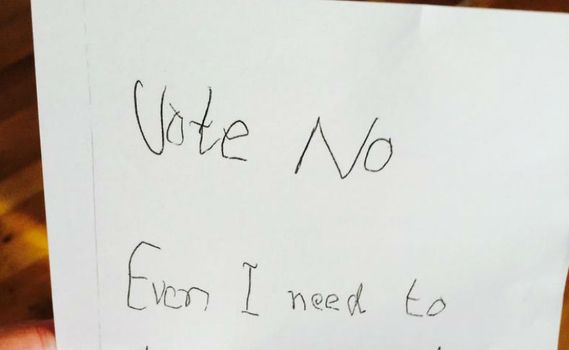 Vote No
Even I need to